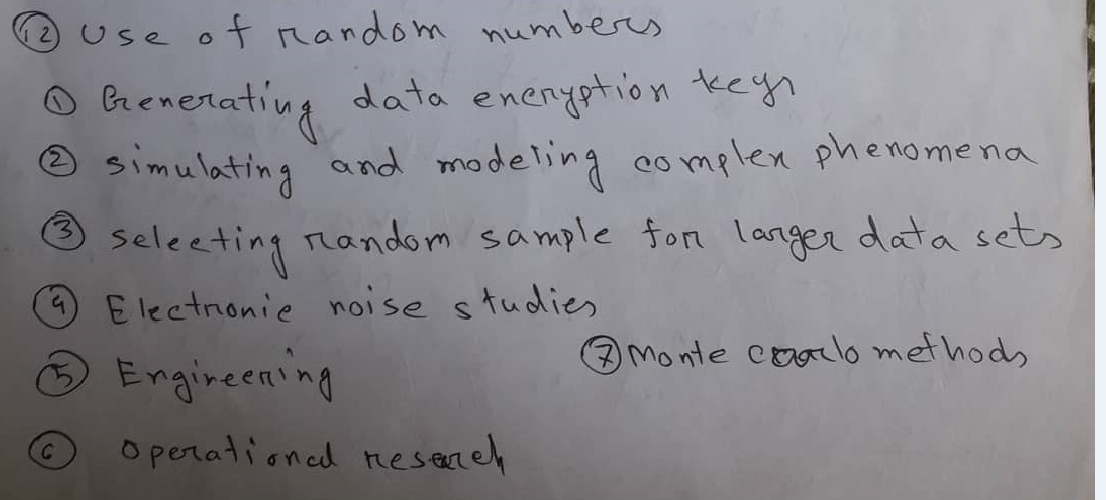 12 Use of random numbers
1 Generating data encryption keys
2 simulating and modeling complex phenomena
3 selecting random sample for larger data sets
4 Electronic noise studies
5 Engineering
7 Monte carlo methods
6 Operational reserch